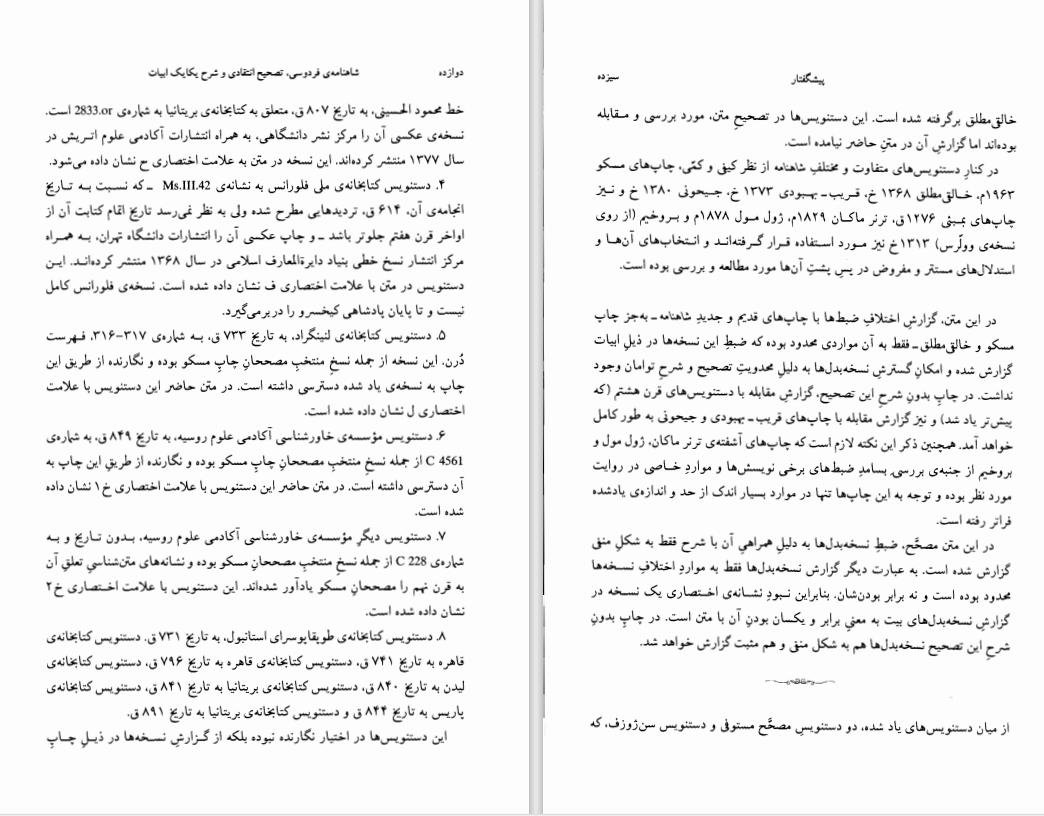 دوازده
شاهنامه‌ی فردوسی، تصحیح انتقادی و شرح یکایک ابیات
خط محمود الحسینی، به تاریخ ۸۰۷ ق، متعلق به کتابخانه‌ی بریتانیا به شماره‌ی 2833.or است.
نسخه‌ی عکسی آن را مرکز نشر دانشگاهی، به همراه انتشارات آکادمی علوم اتریش در
سال ۱۳۷۷ منتشر کرده‌اند. این نسخه در متن به علامت اختصاری ح نشان داده می‌شود.
۴. دستنویس کتابخانه‌ی ملی فلورانس به نشانه‌ی Ms.III.42 ــ که نسبت به تاریخ
انجامه‌ی آن، ۶۱۴ ق، تردیدهایی مطرح شده ولی به نظر نمی‌رسد تاریخ اتمام کتابت آن از
اواخر قرن هفتم جلوتر باشد ــ و چاپ عکسی آن را انتشارات دانشگاه تهران، به همراه
مرکز انتشار نسخ خطی بنیاد دایرةالمعارف اسلامی در سال ۱۳۶۸ منتشر کرده‌اند. این
دستنویس در متن با علامت اختصاری ف نشان داده شده است. نسخه‌ی فلورانس کامل
نیست و تا پایان پادشاهی کیخسرو را دربرمی‌گیرد.
۵. دستنویس کتابخانه‌ی لنینگراد، به تاریخ ۷۳۳ ق، به شماره‌ی ۳۱۷–۳۱۶، فهرست
دُرن. این نسخه از جمله نسخِ منتخبِ مصححانِ چاپِ مسکو بوده و نگارنده از طریق این
چاپ به نسخه‌ی یاد شده دسترسی داشته است. در متن حاضر این دستنویس با علامت
اختصاری ل نشان داده شده است.
۶. دستنویس مؤسسه‌ی خاورشناسی آکادمی علوم روسیه، به تاریخ ۸۴۹ ق، به شماره‌ی
C 4561 از جمله نسخِ منتخبِ مصححانِ چاپِ مسکو بوده و نگارنده از طریقِ این چاپ به
آن دسترسی داشته است. در متن حاضر این دستنویس با علامت اختصاری خ۱ نشان داده
شده است.
۷. دستنویس دیگرِ مؤسسه‌ی خاورشناسی آکادمی علوم روسیه، بدون تاریخ و به
شماره‌ی C 228 از جمله نسخِ منتخبِ مصححانِ مسکو بوده و نشانه‌های متن‌شناسیِ تعلقِ آن
به قرن نهم را مصححانِ مسکو یادآور شده‌اند. این دستنویس با علامت اختصاری خ۲
نشان داده شده است.
۸. دستنویس کتابخانه‌ی طوپقاپوسرای استانبول، به تاریخ ۷۳۱ ق. دستنویس کتابخانه‌ی
قاهره به تاریخ ۷۴۱ ق، دستنویس کتابخانه‌ی قاهره به تاریخ ۷۹۶ ق، دستنویس کتابخانه‌ی
لیدن به تاریخ ۸۴۰ ق، دستنویس کتابخانه‌ی بریتانیا به تاریخ ۸۴۱ ق، دستنویس کتابخانه‌ی
پاریس به تاریخ ۸۴۴ ق و دستنویس کتابخانه‌ی بریتانیا به تاریخ ۸۹۱ ق.
این دستنویس‌ها در اختیار نگارنده نبوده بلکه از گزارشِ نسخه‌ها در ذیلِ چاپِ
پیشگفتار
سیزده
خالقی‌مطلق برگرفته شده است. این دستنویس‌ها در تصحیحِ متن، مورد بررسی و مقابله
بوده‌اند اما گزارشِ آن در متنِ حاضر نیامده است.
در کنارِ دستنویس‌های متفاوت و مختلفِ شاهنامه از نظر کیفی و کمّی، چاپ‌های مسکو
۱۹۶۳م، خالقی‌مطلق ۱۳۶۸ خ، قریب ــ بهبودی ۱۳۷۳ خ، جیحونی ۱۳۸۰ خ و نیز
چاپ‌های بمبئی ۱۲۷۶ق، ترنر ماکان ۱۸۲۹م، ژول مول ۱۸۷۸م و بروخیم (از روی
نسخه‌ی وولّرس) ۱۳۱۳خ نیز مورد استفاده قرار گرفته‌اند و انتخاب‌های آن‌ها و
استدلال‌های مستتر و مفروض در پسِ پشتِ آن‌ها مورد مطالعه و بررسی بوده است.
در این متن، گزارشِ اختلافِ ضبط‌ها با چاپ‌های قدیم و جدیدِ شاهنامه ــ به‌جز چاپ
مسکو و خالقی‌مطلق ــ فقط به آن مواردی محدود بوده که ضبطِ این نسخه‌ها در ذیلِ ابیات
گزارش شده و امکانِ گسترشِ نسخه‌بدل‌ها به دلیلِ محدودیتِ تصحیح و شرحِ توامان وجود
نداشت. در چاپِ بدونِ شرحِ این تصحیح، گزارشِ مقابله با دستنویس‌های قرن هشتم (که
پیش‌تر یاد شد) و نیز گزارشِ مقابله با چاپ‌های قریب ــ بهبودی و جیحونی به طور کامل
خواهد آمد. همچنین ذکر این نکته لازم است که چاپ‌های آشفته‌ی ترنر ماکان، ژول مول و
بروخیم از جنبه‌ی بررسیِ بسامدِ ضبط‌های برخی نویسش‌ها و مواردِ خاصی در روایت
مورد نظر بوده و توجه به این چاپ‌ها تنها در موارد بسیار اندک از حد و اندازه‌ی یادشده
فراتر رفته است.
در این متن مصحَّح، ضبطِ نسخه‌بدل‌ها به دلیلِ همراهیِ آن با شرح فقط به شکلِ منفی
گزارش شده است. به عبارت دیگر گزارش نسخه‌بدل‌ها فقط به مواردِ اختلافِ نسخه‌ها
محدود بوده است و نه برابر بودن‌شان. بنابراین نبودِ نشانه‌ی اختصاری یک نسخه در
گزارشِ نسخه‌بدل‌های بیت به معنیِ برابر و یکسان بودنِ آن با متن است. در چاپِ بدونِ
شرحِ این تصحیح نسخه‌بدل‌ها هم به شکل منفی و هم مثبت گزارش خواهد شد.
از میان دستنویس‌های یاد شده، دو دستنویسِ مصحَّح مستوفی و دستنویس سن‌ژوزف، که